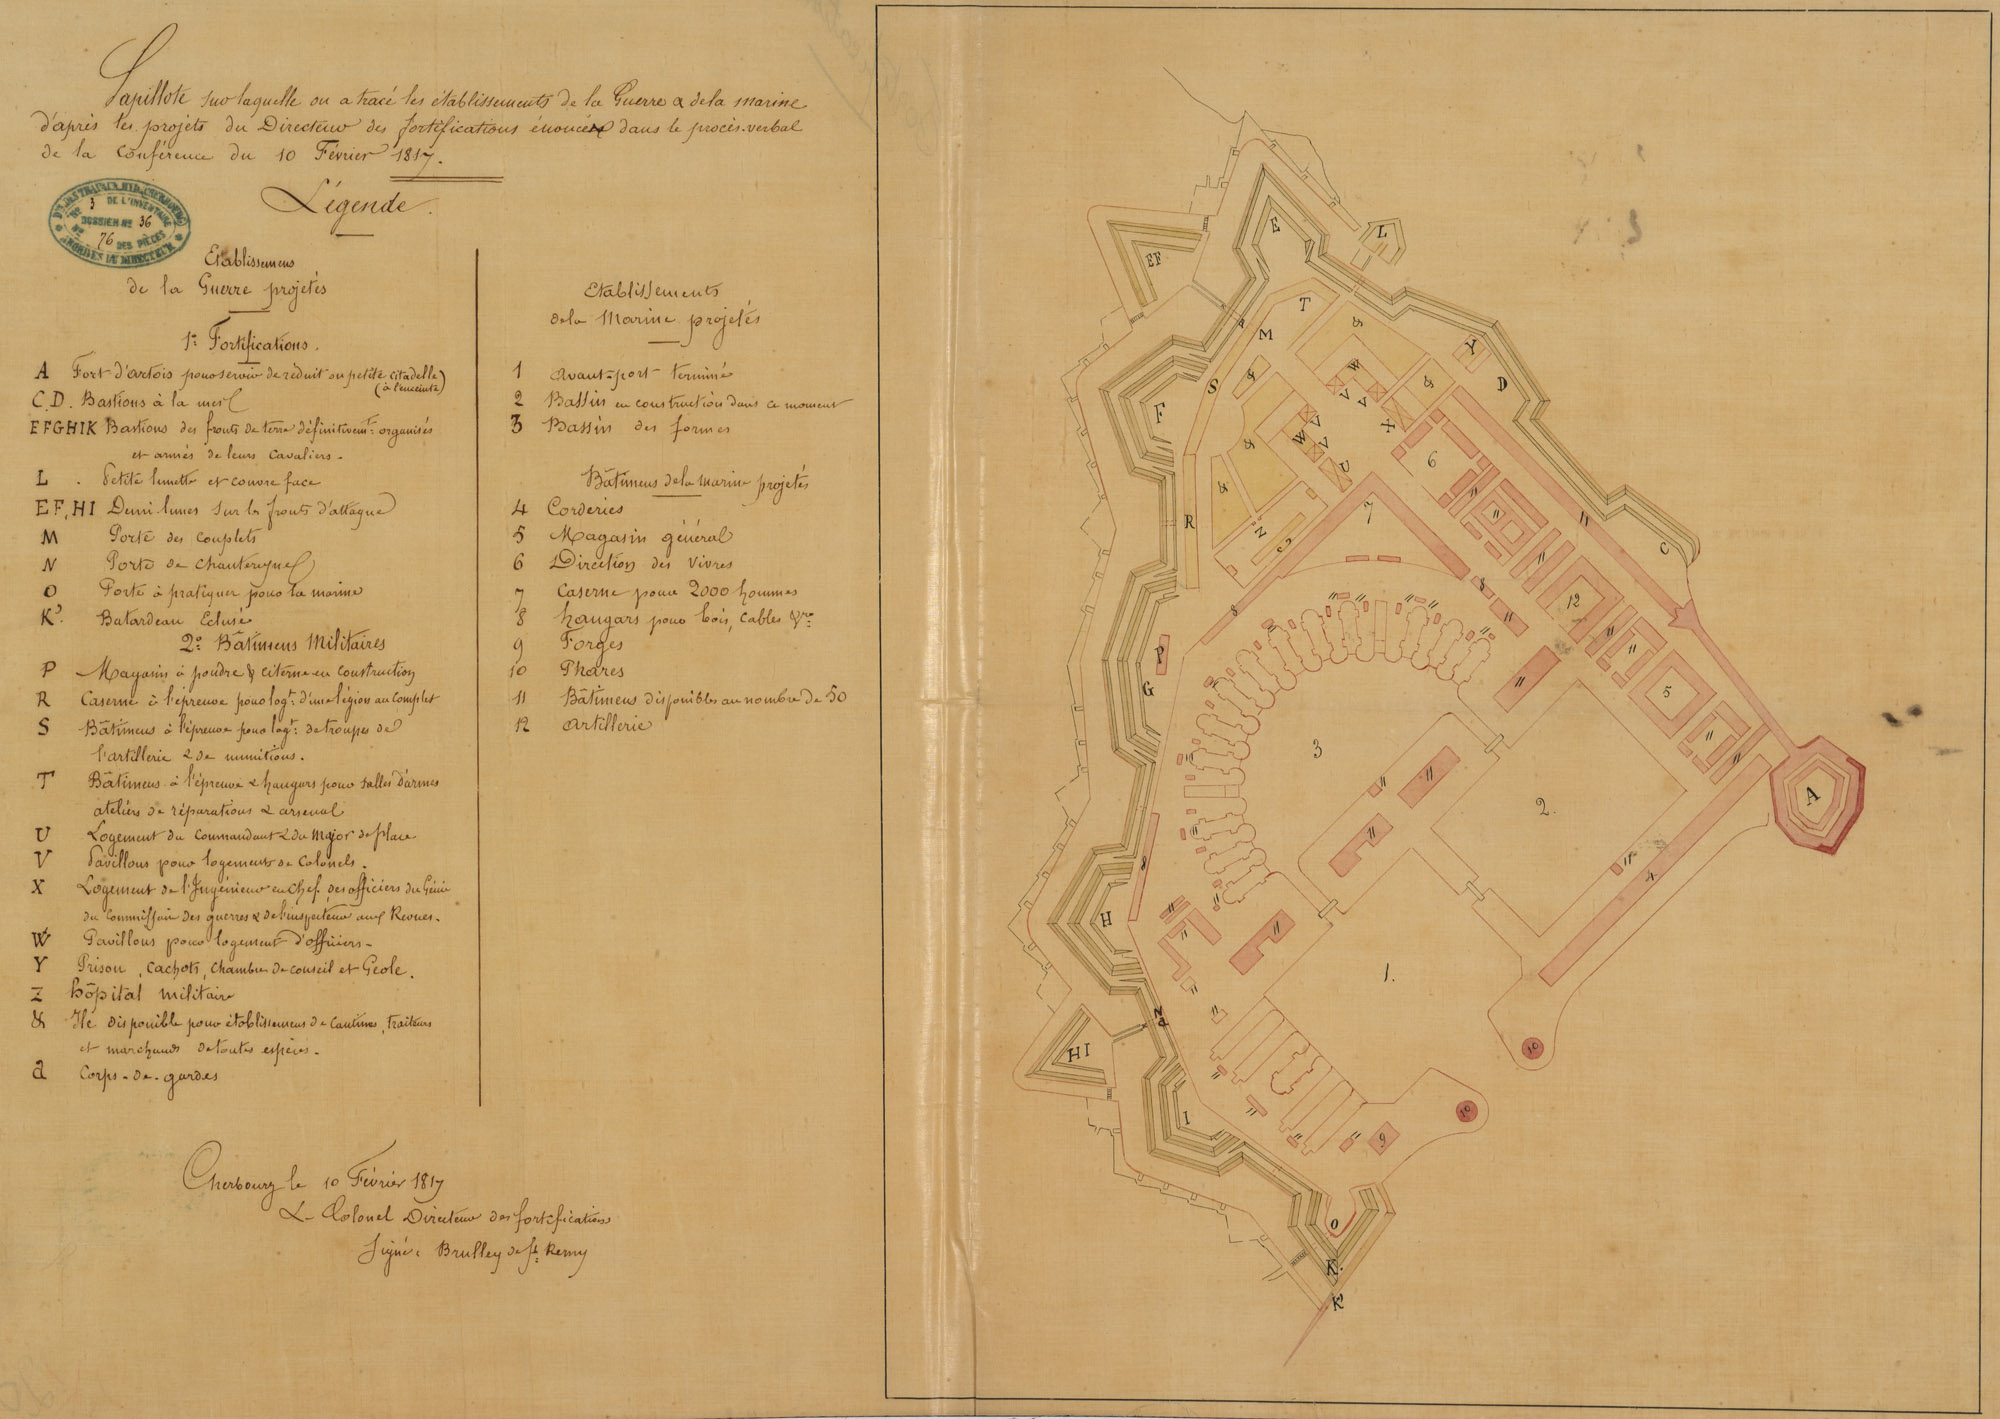 Papillote sur laquelle on a tracé les établissements de la Guerre & de la marine
d'après les projets du Directeur des fortifications énoncés dans le procès-verbal
de la Conférence du 10 Février 1817.
Légende.
Don DES TRAVAUX HYD. CHERBOURG
No 3 DE L'INVENTAIRE
DOSSIER No 36
No 76 DES PIÈCES
ARCHIVES DU DIRECTEUR
Etablissemens
de la Guerre projetés
1o Fortifications.
A Fort d'artois pour servir de réduit ou petite citadelle
(à l'enceinte)
C.D. Bastions à la mer
EFGHIK Bastions des fronts de terre définitivemt organisés
et armés de leurs Cavaliers.
L . Petite lunette et couvre face
EF, HI Demi lunes sur les fronts d'attaque
M Porte des Couplets
N Porte de Chantereyne
O Porte à pratiquer pour la marine
K'. Batardeau Eclusé
2o Bâtimens Militaires
P Magasin à poudre & citerne en construction
R Caserne à l'épreuve pour logt d'une légion au complet
S Bâtimens à l'épreuve pour logt de troupes de
l'artillerie & de munitions.
T Bâtimens à l'épreuve & hangars pour salles d'armes
ateliers de réparations & arsenal
U Logement du Commandant & du Major de place
V Pavillons pour logements de Colonels.
X Logement de l'Ingénieur en Chef, des officiers du Génie
du Commissair des guerres & de l'inspecteur aux Revues.
W Pavillons pour logement d'officiers.
Y Prison, Cachots, Chambre de conseil et Geole.
Z hôpital militaire
& Ile disponible pour établissemens de Cantines, traiteurs
et marchands de toutes espèces.
a Corps-de-gardes
Etablissements
de la Marine projetés
1 Avant-port terminé
2 Bassin en construction dans ce moment
3 Bassin des formes
Bâtimens de la marine projetés
4 Corderies
5 Magasin général
6 Direction des vivres
7 Caserne pour 2000 hommes
8 hangars pour bois, Cables &ca
9 Forges
10 Phares
11 Bâtimens disponibles au nombre de 50
12 Artillerie
Cherbourg le 10 Février 1817
Le Colonel Directeur des fortifications
Signé: Brulley de St. Remy
E
L
EF
T
M
&
Y
S
&
W
&
D
V V
X
F
V
V
W
&
U
6
&
7
R
Z
11
C
8
12
P
G
5
3
A
2.
4
8
H
1.
N
HI
10
10
I
9
O
K.
K'